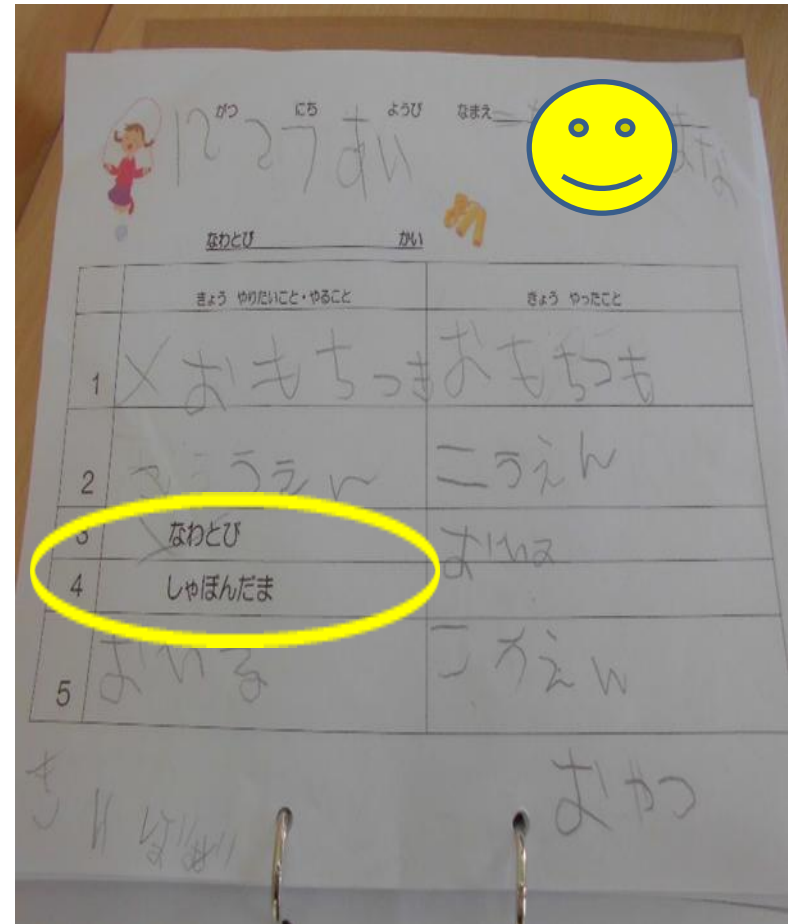 12 がつ 27 にち すい ようび なまえ
なわとび かい
きょう やりたいこと・やること きょう やったこと
1 × おもちつき おもちつき
2 こうえん こうえん
3 なわとび おひる
4 しゃぼんだま
5 おひる こうえん
おやつ